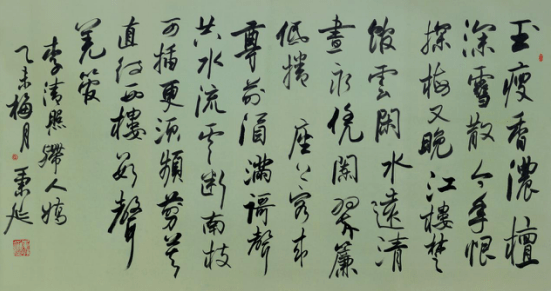 玉瘦香濃檀
深雪散今年恨
探梅又晚江樓楚
館雲閑水遠清
晝永凭闌翠簾
低捲座上客來
尊前酒滿謌聲
共水流雲斷南枝
可插更須頻剪莫
直待西樓數聲
羌管
李清照殢人嬌
乙未梅月